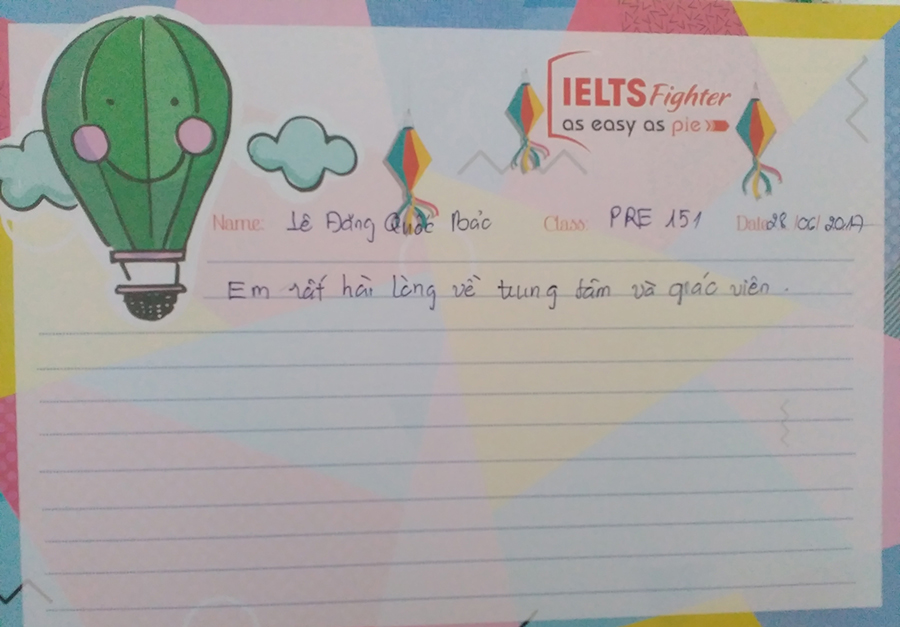 IELTS Fighter
as easy as pie
Name: Lê Đăng Quốc Bảo Class: PRE 151 Date: 28/06/2017
Em rất hài lòng về trung tâm và giáo viên.